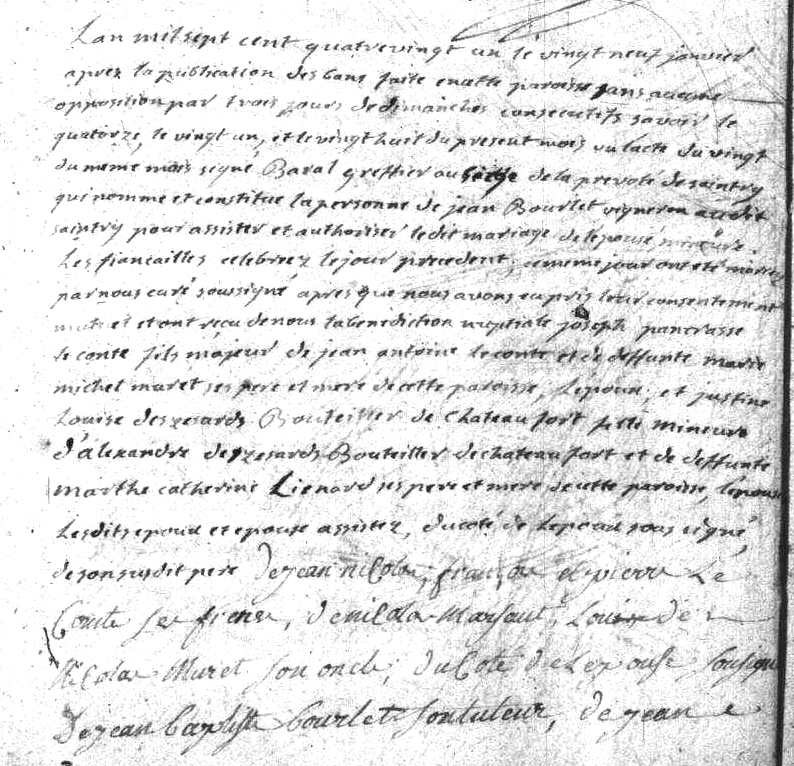 Lan mil sept cent quatrevingt un le vingt neuf janvier
apres la publication des bans faite en cette paroisse sans aucune
opposition par trois jours de dimanches consecutifs savoir le
quatorze, le vingt un, et le vingt huit du present mois vu lacte du vingt
du meme mois signé Baral greffier au siege de la prevoté de saintry
qui nomme et constitue la personne de jean Bourlet vigneron audit
saintry pour assister et authoriser ledit mariage de lepouse mineure.
Les fiancailles celebrez le jour precedent, ce meme jour ont eté mariez
par nous curé soussigné apres que nous avons eu pris leur consentement
mutuel et ont recu de nous la benediction nuptiale joseph pancrasse
le conte fils majeur de jean antoine le conte et de deffunte marie
michel muret ses pere et mere de cette paroisse, lepoux; et justine
Louise deszesards Bouteiller de chateau fort fille mineure
d'alexandre deszesards Bouteiller de chateau fort et de deffunte
marthe catherine Lienard ses pere et mere de cette paroisse, lepouse
Lesdits epoux et epouse assistez, du coté de Lepoux sous signé,
de son susdit pere De jean nicolas, françois et pierre Le
Conte ses freres, de nicolas Marsaut, Louis de
Nicolas Muret son oncle; du Coté de Lepouse soussigné
De jean Baptiste Bourlet son tuteur, de jean